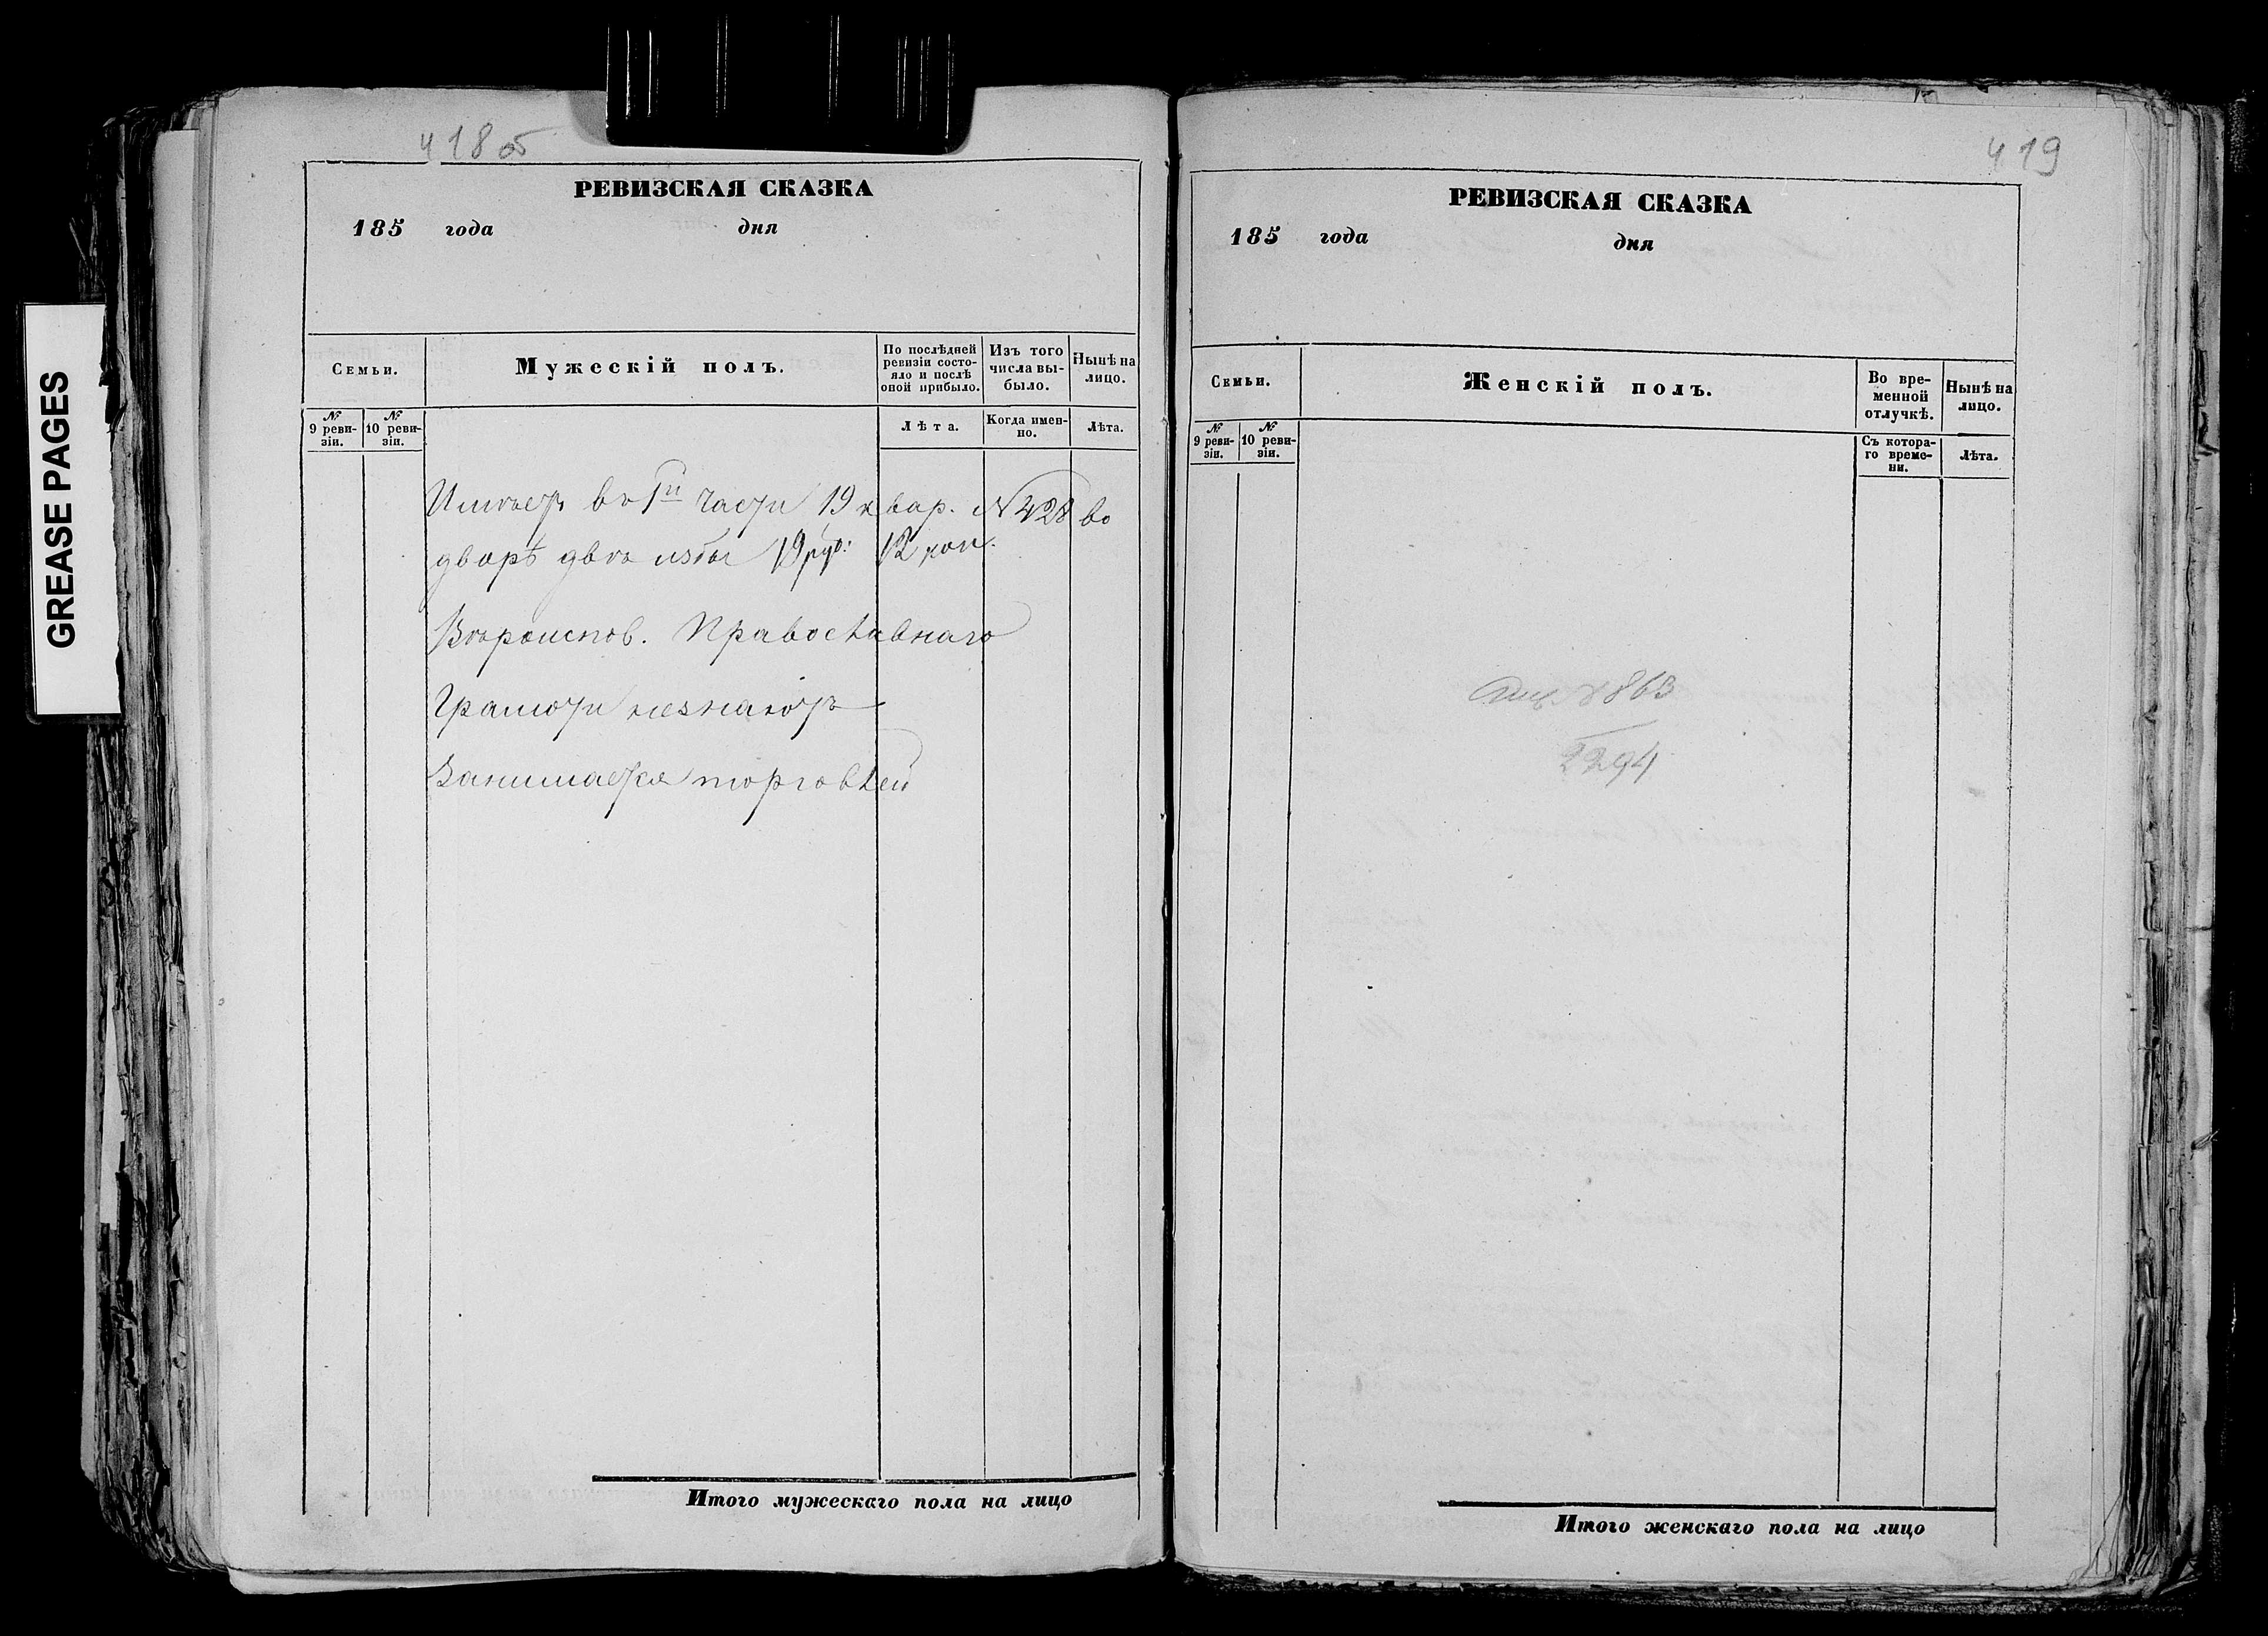 418 об
РЕВИЗСКАЯ СКАЗКА
185 года дня
Семьи.
Мужескій полъ.
По послѣдней ревизіи состо-
яло и послѣ
оной прибыло.
Изъ того
числа вы-
было.
Нынѣ на
лицо.
№
9 реви-
зіи.
№
10 реви-
зіи.
Лѣта.
Когда имен-
но.
Лѣта.
Имѣетъ въ 1й части 19 квар. № 428 во
дворѣ двѣ избы 19 руб: 12 коп.
Вѣроиспов. Православнаго
Грамоти незнаютъ
Занимается торговлей
Итого мужескаго пола на лицо
GREASE PAGES
419
РЕВИЗСКАЯ СКАЗКА
185 года дня
Семьи.
Женскій полъ.
Во вре-
менной
отлучкѣ.
Нынѣ на
лицо.
№
9 реви-
зіи.
№
10 реви-
зіи.
Съ котора-
го време-
ни.
Лѣта.
863
2294
Итого женскаго пола на лицо